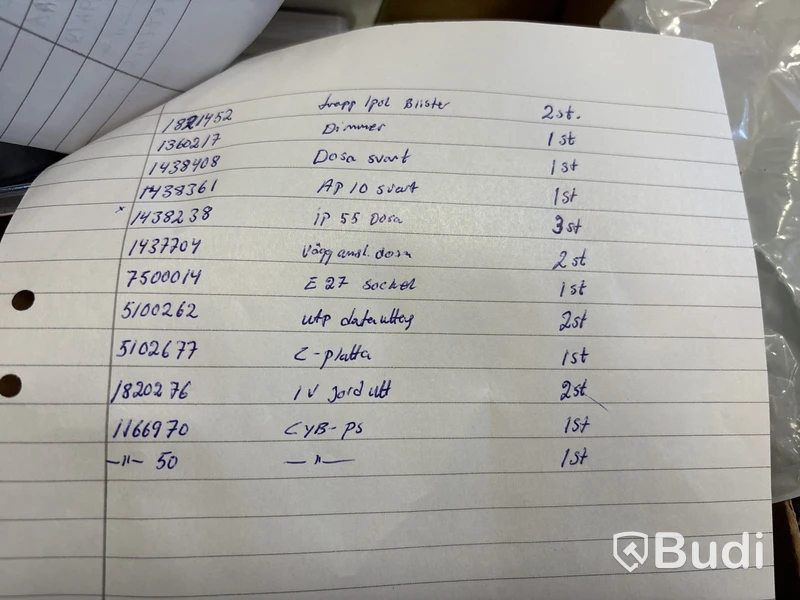 1821452 trapp 1pol Blister 2st.
1360217 Dimmer 1st
1438408 Dosa svart 1st
1438361 AP 10 svart 1st
x 1438238 IP 55 Dosa 3st
1437704 Vägg ansl. dosa 2st
7500014 E27 sockel 1st
5100262 utp datauttag 2st
5102677 C-platta 1st
1820276 1V jord utt 2st
1166970 CYB-PS 1st
-"- 50 -"- 1st
Budi